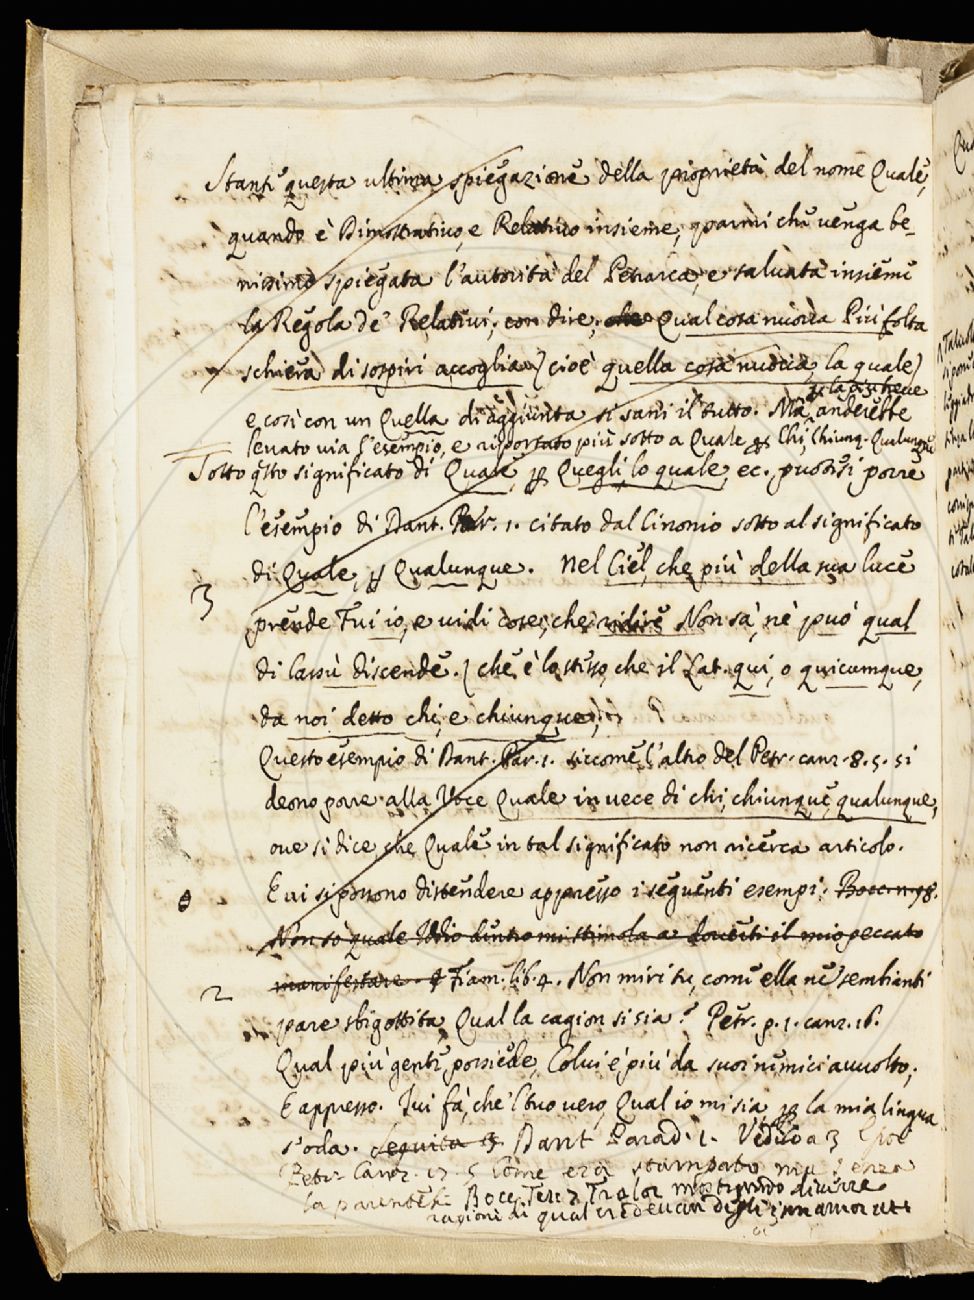 Stante questa ultima spiegazione della proprietà del nome Quale,
quando è Dimostrativo, e Relativo insieme, parmi che venga be-
nissimo spiegata l'autorità del Petrarca, e salvata insieme
la Regola de' Relativi, con dire, che Qual cosa nuova Più folta
schiera di sospiri accoglia) cioè quella cosa nuova, la quale)
e così con un Quella di aggiunta si sani il tutto. Ma anderebbe
levato via l'esempio, e riportato più sotto a Quale Chi, Chiunq. Qualunque
Sotto qsto significato di Quale, Quegli, lo quale, ec. puossi porre
l'esempio di Dant. Par. 1. citato dal Cinonio sotto al significato
3
di Quale, Qualunque. Nel Ciel, che più della sua luce
prende Fui io, e vidi cose, che ridire Non sà, nè può qual
di lassù discende.) che è lo stesso, che il Lat. qui, o quicumque,
da noi detto chi, e chiunque,
Questo esempio di Dant. Par. 1. siccome l'altro del Petr. canz. 8. 5. si
deono porre alla Voce Quale in vece di chi, chiunque, qualunque,
ove si dice, che Quale in tal significato non ricerca articolo.
E vi si possono distendere appresso i seguenti esempi. Bocc. n. 98.
Non so quale Iddio dentro mi stimola a doverti il mio peccato
2
manifestare. Fiam. lib. 4. Non miri tu, com' ella ne' sembianti
pare sbigottita Qual la cagion si sia? Petr. p. 1. canz. 16.
Qual più gente possiede, Colui è più da' suoi nemici avvolto,
E appresso. Ivi fà, che 'l tuo vero, Qual io mi sia, la mia lingua
s'oda. Seguita 3. Dant Parad. 1. Veduto a 3
Petr. Canz. 17. 5 Come era stampato ma senza
la parentesi Bocc. Tralor mostrando diverse
ragioni di qual credeva degli innamorati